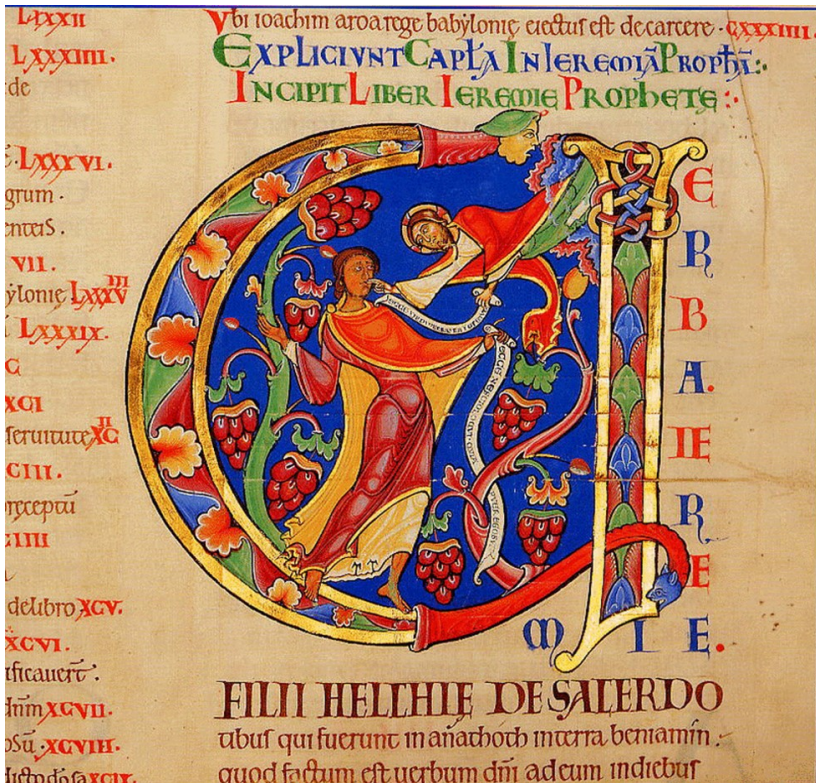 LXXXII
LXXXIIII.
de
LXXXVI.
grum.
VII.
ylonie LXXXVIII
LXXXIX.
C
XCI
seruitute XCII
CIII.
p̄ceptū
CIIII
de libro XCV.
XCVI.
ificauer̄t.
dn̄m XCVII.
XCVIII.
XCIX.
Vbi ioachim aroa rege babylonie eiectus est de carcere. CXXXIIII.
EXPLICIVNT CAPĪLA IN IEREMIĀ PROPH̄Ā:
INCIPIT LIBER IEREMIE PROPHETE:
V
E
R
B
A.
IE
R
E
M I E.
ECCE NESCIO LOQVI PVER EGO SV
FILII HELCHIE DE SACERDO
tibus qui fuerunt in anathoth in terra beniamin.
quod factum est uerbum dn̄i ad eum in diebus